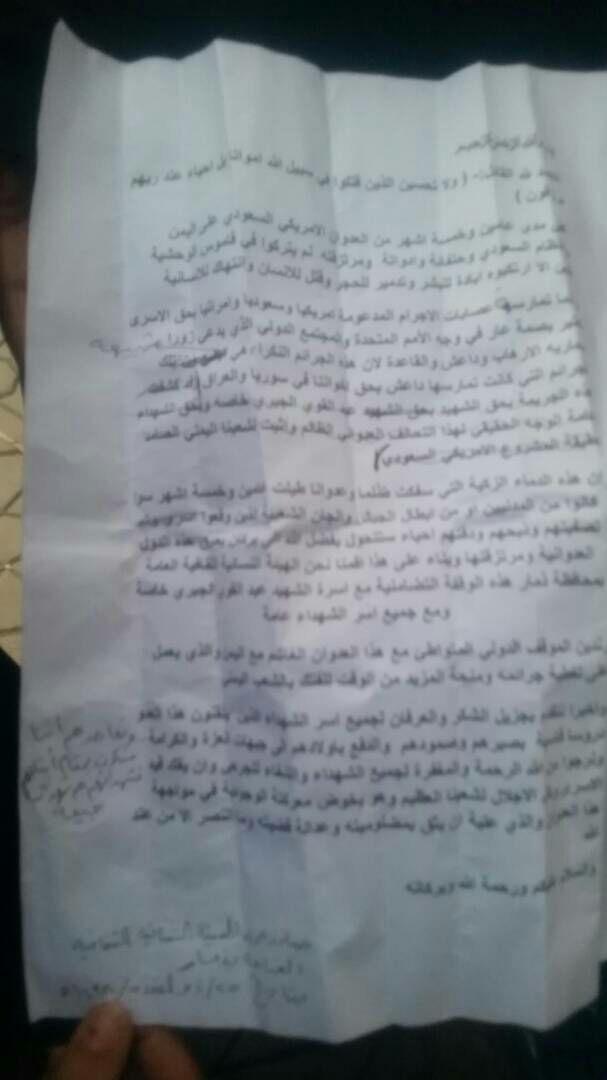 بسم الله الرحمن الرحيم
الحمد لله القائل:- ( ولا تحسبن الذين قتلوا في سبيل الله امواتا بل احياء عند ربهم
يرزقون )
على مدى عامين وخمسة اشهر من العدوان الامريكي السعودي على اليمن
النظام السعودي وحلفائة وادواتة ومرتزقته لم يتركوا في قاموس الوحشية
الا ارتكبوه ابادة للبشر وتدمير للحجر وقتل للانسان وانتهاك للانسانية
ما تمارسها عصابات الاجرام المدعومة امريكيا وسعوديا واماراتيا بحق الاسرى
بصمة عار في وجه الأمم المتحدة والمجتمع الدولي الذي يدعي زورا
محاربة الارهاب وداعش والقاعدة لان هذه الجرائم النكراء هي تلك
الجرائم التي كانت تمارسها داعش بحق اخواننا في سوريا والعراق قد كشفت
هذه الجريمة بحق الشهيد بحق الشهيد عبد القوي الجبري خاصه وبحق الشهداء
عامة الوجه الحقيقي لهذا التحالف العدواني الظالم واثبت لشعبنا اليمني الصامد
حقيقة المشروع الامريكي السعودي
إن هذه الدماء الزكية التي سفكت ظلما وعدوانا طيلت عامين وخمسة اشهر سوا
كانوا من المدنيين او من ابطال الجيش واللجان الشعبية الذين وقعوا اسرى وتم
تصفيتهم وذبحهم ودفنهم احياء ستتحول بفضل الله الى براكين بحق هذه الدول
العدوانية ومرتزقتها وبناء على هذا اقمنا نحن الهيئة النسائية الثقافية العامة
بمحافظة ذمار هذه الوقفة التضامنية مع اسرة الشهيد عبد القوي الجبري خاصة
ومع جميع اسر الشهداء عامة
ندين الموقف الدولي المتواطئ مع هذا العدوان الغاشم مع اليمن والذي يعمل
على تغطية جرائمه ومنحة المزيد من الوقت للفتك بالشعب اليمني
واخيرا نتقدم بجزيل الشكر والعرفان لجميع اسر الشهداء الذين يلقنون هذا العدو
دروسا قاسية بصبرهم وصمودهم والدفع باولادهم الى جبهات العزة والكرامة
ونرجوا من الله الرحمة والمغفرة لجميع الشهداء والشفاء للجرحى وان يفك قيد
الاسرى وكل الاجلال لشعبنا العظيم وهو يخوض معركتة الوجودية في مواجهة
هذا العدوان والذي علية ان يثق بمضلوميته وعدالة قضيته وما النصر الا من عند
الله
والسلام عليكم ورحمة الله وبركاته
صادر عن الهيئة النسائية الثقافية
العامة بذمار